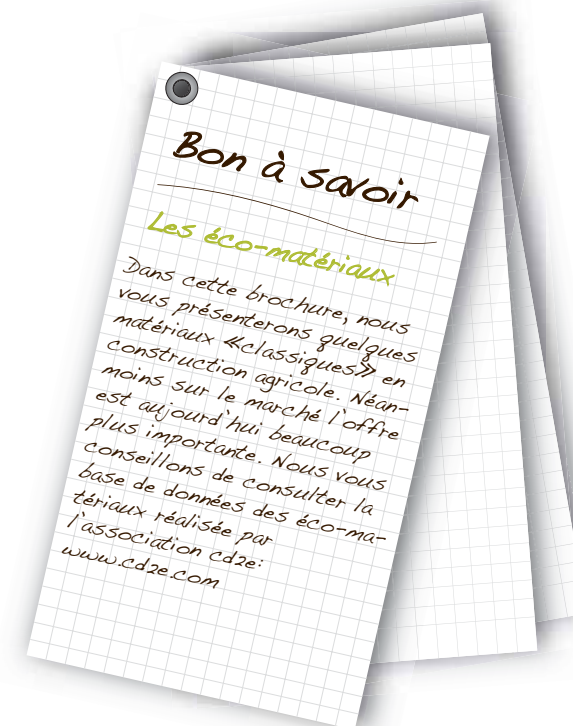 Bon à savoir
Les éco-matériaux
Dans cette brochure, nous
vous présenterons quelques
matériaux «classiques» en
construction agricole. Néan-
moins sur le marché l'offre
est aujourd'hui beaucoup
plus importante. Nous vous
conseillons de consulter la
base de données des éco-ma-
tériaux réalisée par
l'association cd2e:
www.cd2e.com